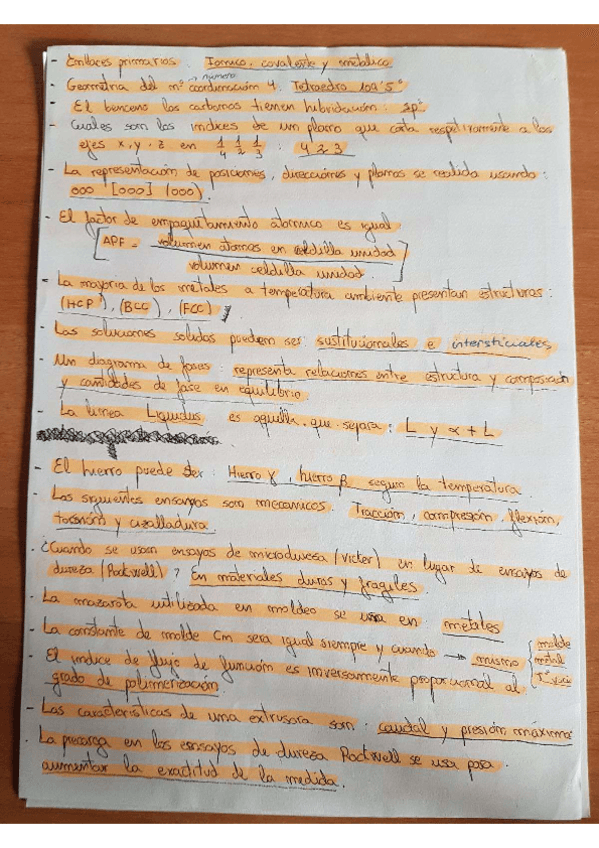 - Enlaces primarios: Iónico, covalente y metálico
- Geometría del nº coordinación 4. Tetraedro 109'5°
→ número
- El benceno los carbonos tienen hibridación: sp²
- Cuales son los índices de un plano que corta respectivamente a los
ejes x, y, z en 1/4 1/2 1/3 : 4 2 3
- La representación de posiciones, direcciones y planos se realiza usando:
000 [000] (000)
- El factor de empaquetamiento atómico es igual
[APF = volumen átomos en celdilla unidad
volumen celdilla unidad]
- La mayoria de los metales a temperatura ambiente presentan estructuras:
(HCP), (BCC), (FCC)
- Las soluciones solidas pueden ser: sustitucionales e intersticiales
- Un diagrama de fases: representa relaciones entre estructura y composición
y cantidades de fase en equilibrio
- La linea Liquidus es aquella que separa: L y α + L
- El hierro puede ser: Hierro γ, hierro β según la temperatura
- Los siguientes ensayos son mecanicos: Tracción, compresión, flexión,
torsión y cizalladura.
- ¿Cuando se usan ensayos de microdureza (Vicker) en lugar de ensayos de
dureza (Rockwell)? En materiales duros y fragiles.
- La mazarota utilizada en moldeo se usa en: metales
- La constante de molde Cm sera igual siempre y cuando → mismo { molde
metal
- El indice de flujo de función es inversamente proporcional al
grado de polimerización.
- Las caracteristicas de una extrusora son: caudal y presión máxima
- La precarga en los ensayos de dureza Rockwell se usa para
aumentar la exactitud de la medida.